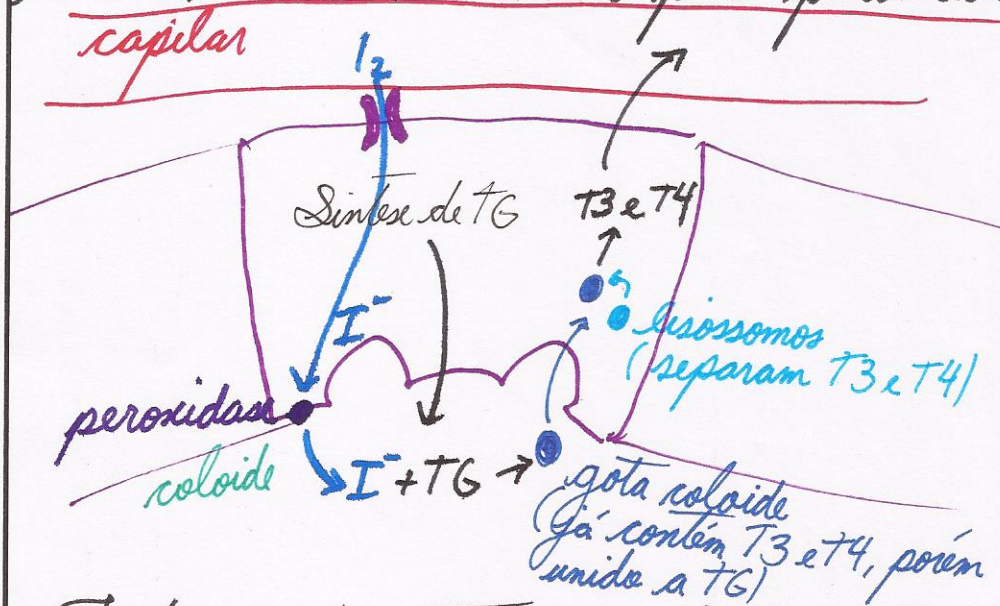 capilar
I2
Síntese de TG
T3 e T4
I-
lisossomos
(separam T3 e T4)
peroxidase
coloide
I- + TG
gota coloide
(já contém T3 e T4, porém
unido a TG)